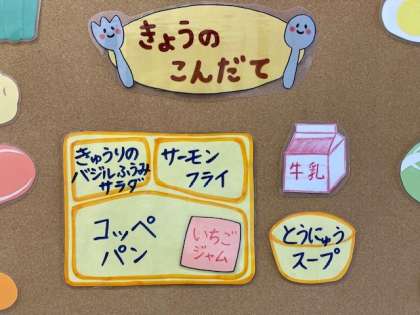 きょうの
こんだて
きゅうりの
バジルふうみ
サラダ
サーモン
フライ
牛乳
コッペ
パン
いちご
ジャム
とうにゅう
スープ